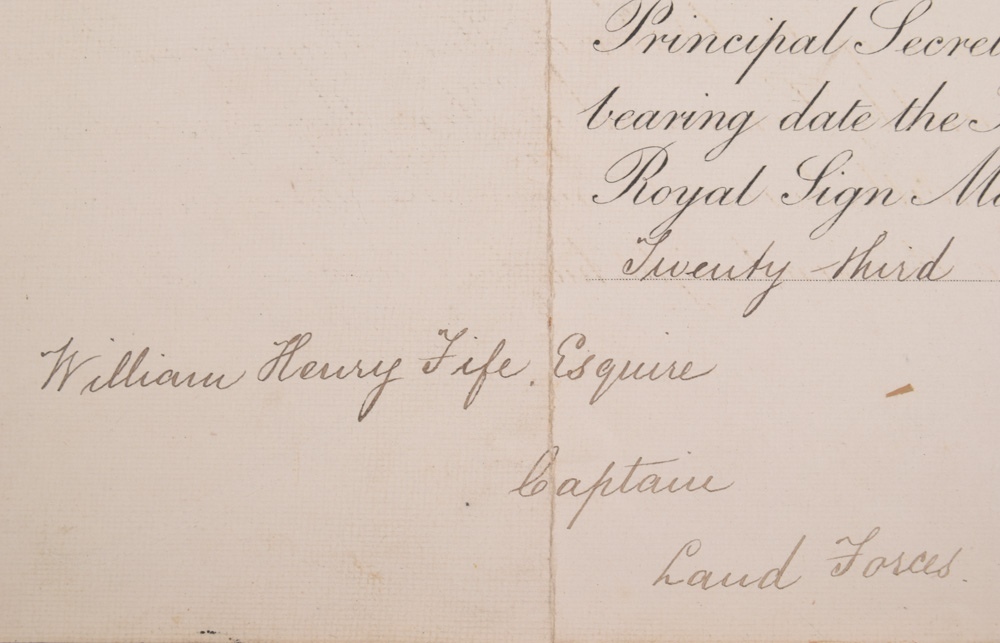 Principal Secre
bearing date the
Royal Sign Ma
Twenty third
William Henry Fife, Esquire
Captain
Land Forces.